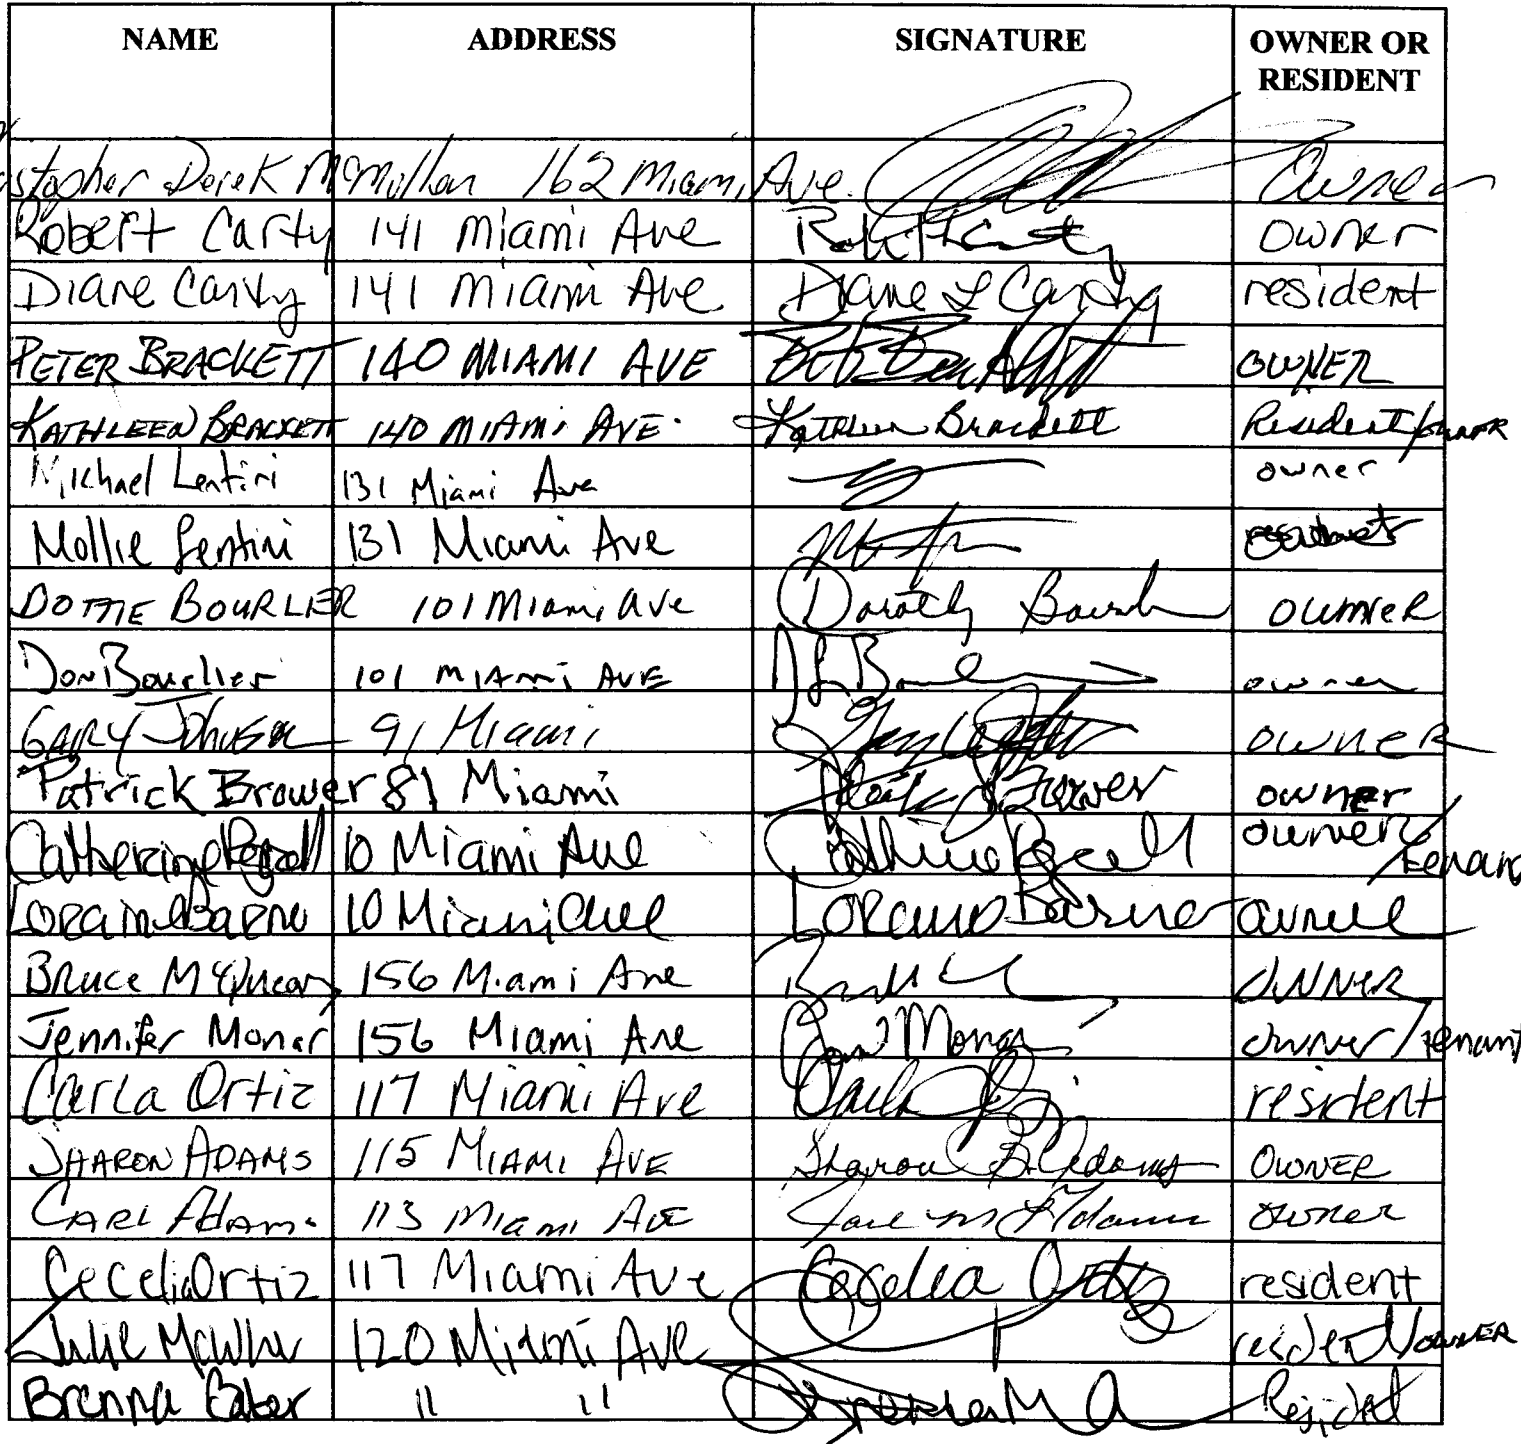 NAME ADDRESS SIGNATURE OWNER OR RESIDENT
Derek McMullan 162 Miami Ave. Owner
Robert Carty 141 Miami Ave owner
Diane Carty 141 Miami Ave Diane L Carty resident
PETER BRACKETT 140 MIAMI AVE OWNER
KATHLEEN BRACKETT 140 MIAMI AVE. Kathleen Brackett Resident/owner
Michael Lentini 131 Miami Ave owner
Mollie Lentini 131 Miami Ave
DOTTIE BOURLIER 101 Miami Ave Dorothy owner
Don Bourlier 101 MIAMI AVE owner
GARY Johnson 91 Miami owner
Patrick Brower 81 Miami Brower owner
Catherine 10 Miami Ave owner/tenant
10 Miami Ave
Bruce 156 Miami Ave OWNER
Jennifer 156 Miami Ave owner/tenant
Carla Ortiz 117 Miami Ave resident
SHARON ADAMS 115 MIAMI AVE Sharon B. Adams OWNER
CARL Adams 113 Miami Ave Adams owner
Cecelia Ortiz 117 Miami Ave Cecelia Ortiz resident
Julie 120 Miami Ave resident/owner
Brenna " " Resident